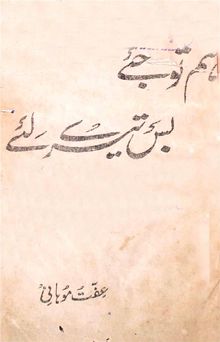 ہم تو جئے
بس تیرے لئے
عفت موہانی